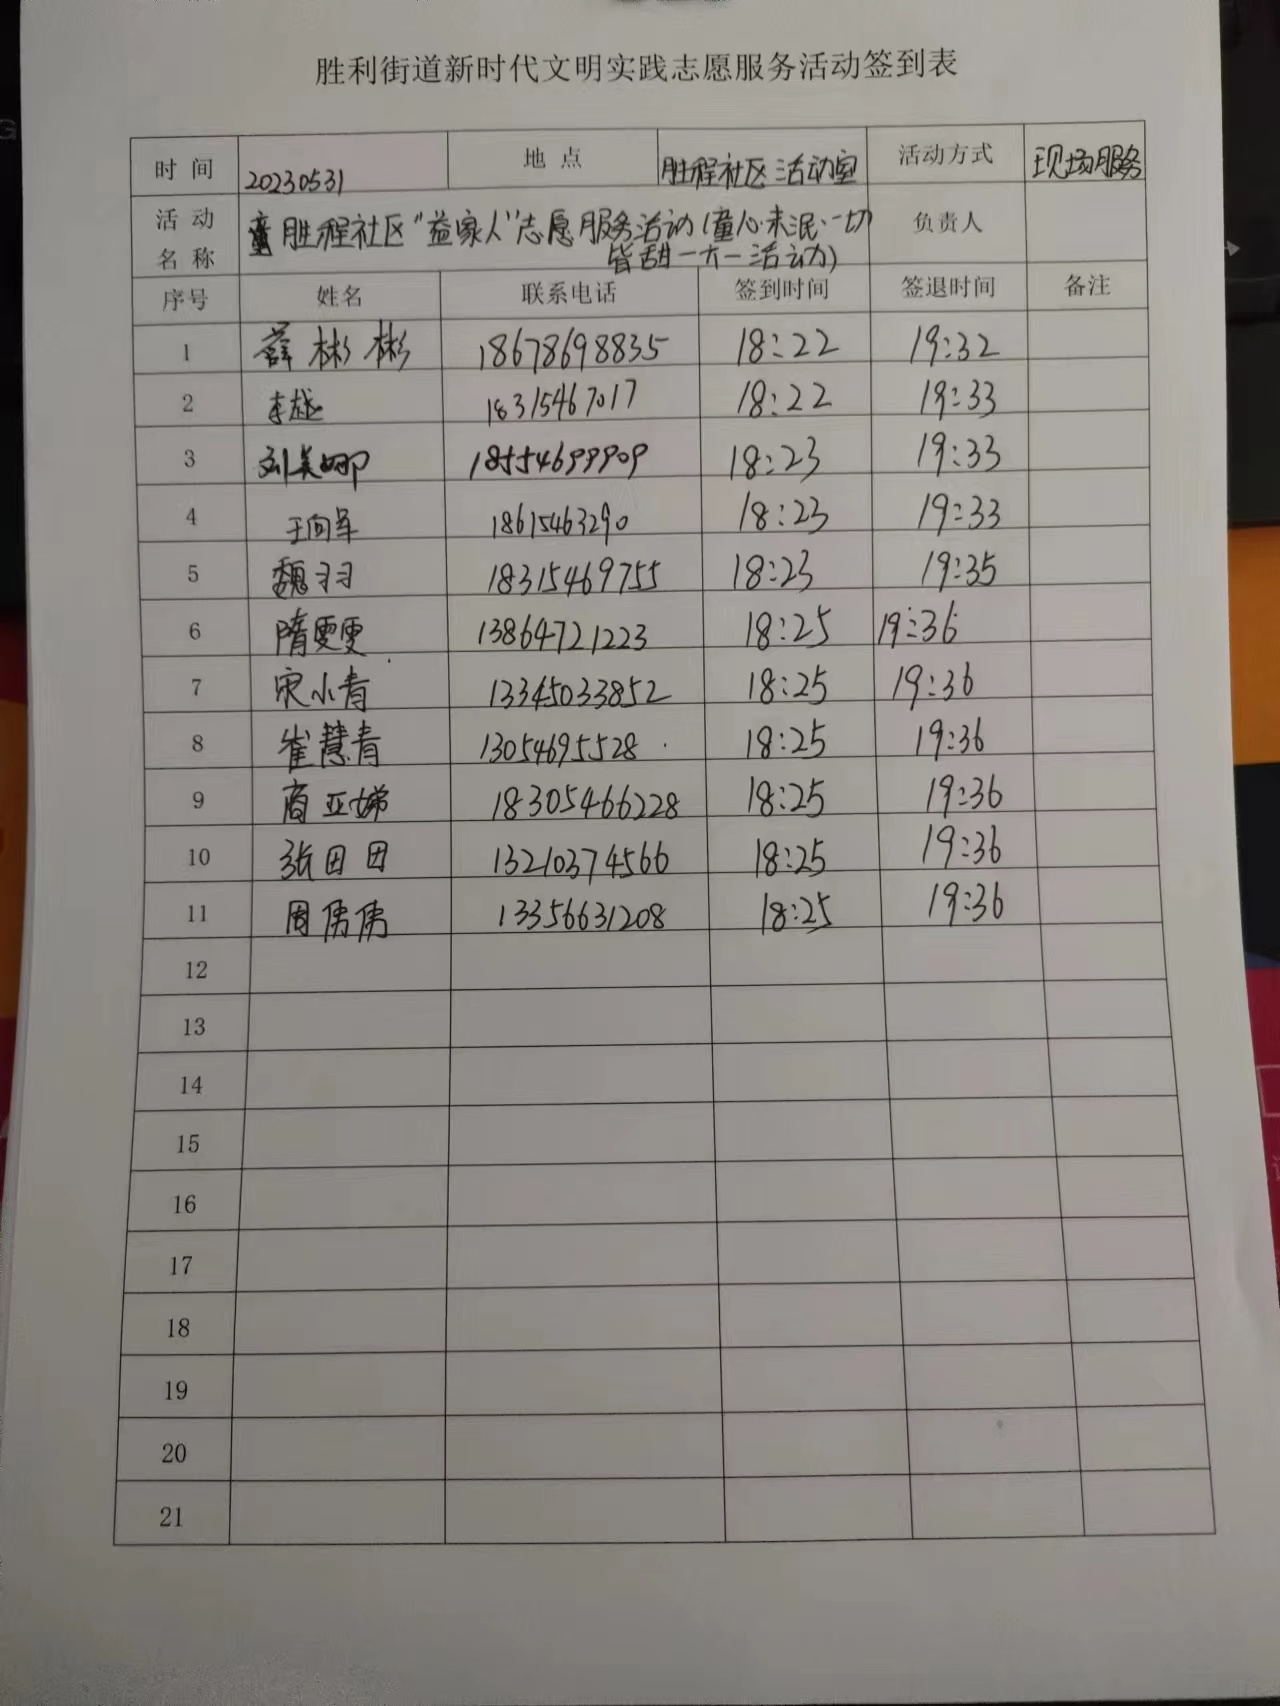 胜利街道新时代文明实践志愿服务活动签到表
时间 20230531 地点 胜程社区活动室 活动方式 现场服务
活动名称 胜程社区“益家人”志愿服务活动(童心未泯·一切 负责人
皆甜—六一活动)
序号 姓名 联系电话 签到时间 签退时间 备注
1 薛彬彬 18678698835 18:22 19:32
2 李越 18315467017 18:22 19:33
3 刘美娜 18554699909 18:23 19:33
4 王向军 18615463290 18:23 19:33
5 魏羽 18315469755 18:23 19:35
6 隋雯雯 13864721223 18:25 19:36
7 宋小青 13345033852 18:25 19:36
8 崔慧青 13054695528 18:25 19:36
9 商亚娣 18305466228 18:25 19:36
10 张团团 13210374566 18:25 19:36
11 周倩倩 13356631208 18:25 19:36
12
13
14
15
16
17
18
19
20
21